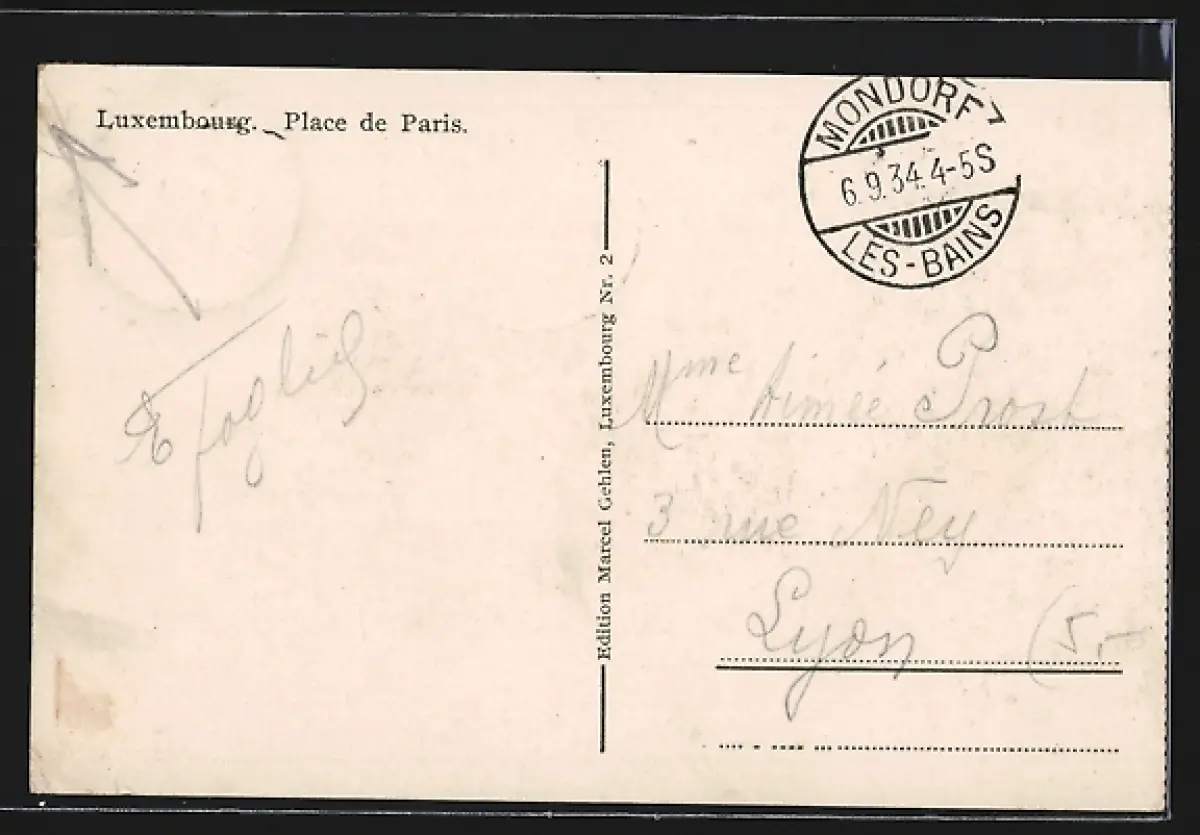 Luxembourg. Place de Paris.
MONDORF
6.9.34. 4-5S
LES-BAINS
Edition Marcel Gehlen, Luxembourg Nr. 2
Mme Aimée Prost
3 rue Ney
Lyon
(5,-